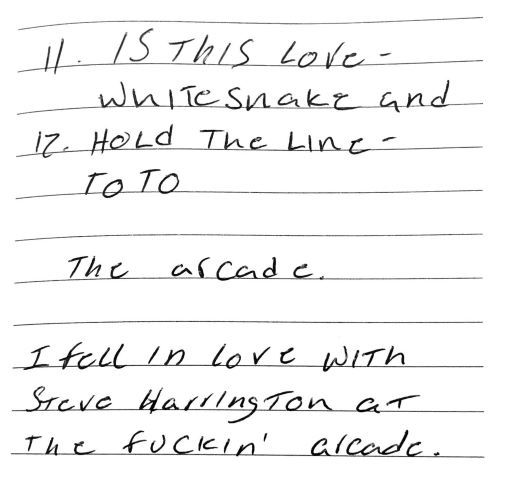 11. IS THIS LOVE -
WHITESNAKE and
12. HOLD THE LINE -
TOTO
The arcade.
I fell in love WITH
Steve Harrington at
the fuckin' arcade.